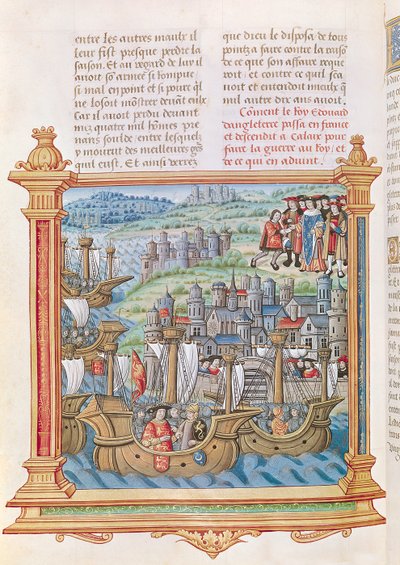 entre les autres maulx il
leur fist presque perdre la
saison. Et au regard de luy il
auoit sō armee si rompue
si mal en point et si poure ql̄
ne losoit mōstrer deuāt eulx
Car il auoit perdu deuant
nuz quatre mil hōmes pre
nans soulde, entre lesquelz
y mourut des meilleurs gēs
quil eust. Et ainsi verrez
que dieu le disposa de tous
pointz a faire contre la raisō
de ce que son affaire reque
roit, et contre ce quil sca
uoit et entendoit mieulx q̄
nul autre dix ans auoit.
Cōment le Roy Edouard
dangleterre passa en france
et descendit a Calaix pour
faire la guerre au Roy, et
de ce qui en aduint.